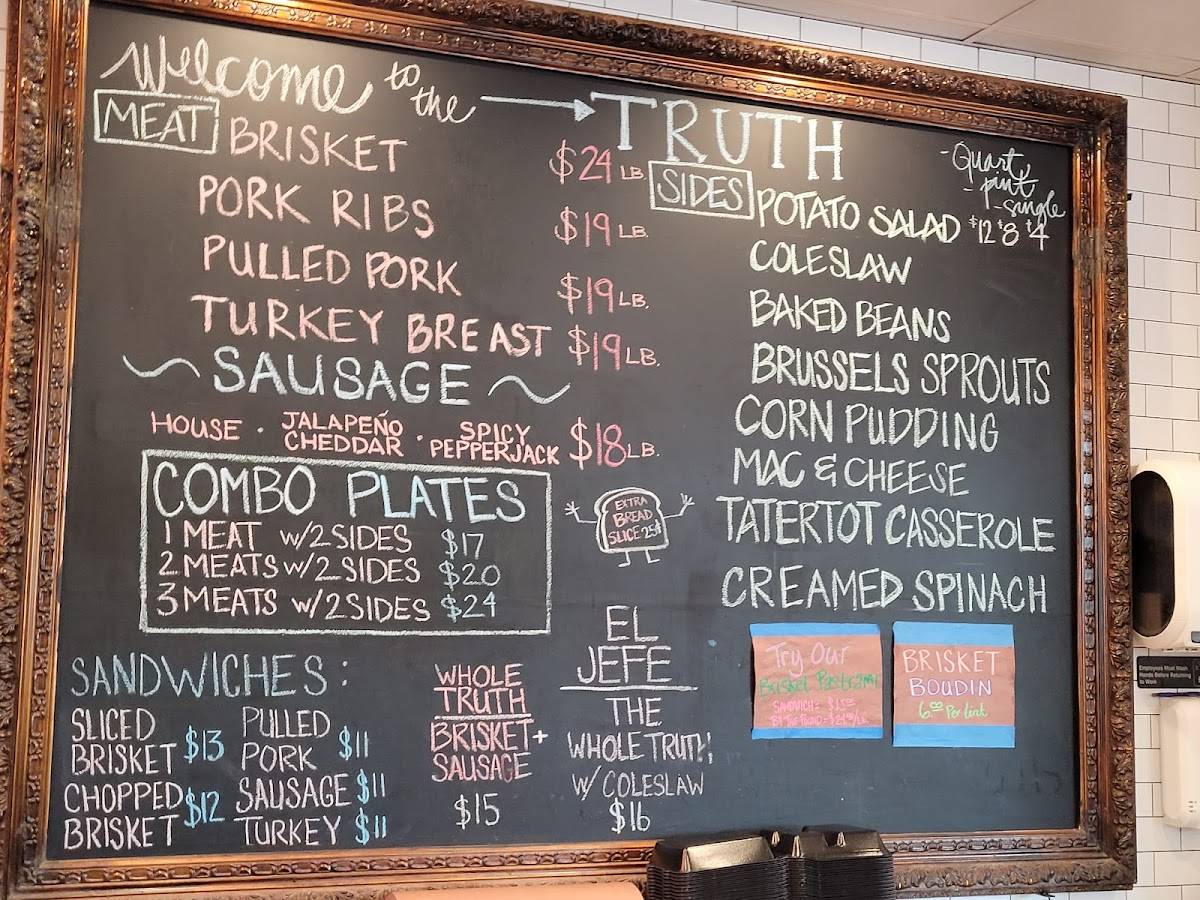 Welcome to the → TRUTH
MEAT
BRISKET $24 LB.
PORK RIBS $19 LB.
PULLED PORK $19 LB.
TURKEY BREAST $19 LB.
~ SAUSAGE ~
HOUSE · JALAPEÑO CHEDDAR · SPICY PEPPERJACK $18 LB.
COMBO PLATES
1 MEAT w/2 SIDES $17
2 MEATS w/2 SIDES $20
3 MEATS w/2 SIDES $24
EXTRA
BREAD
SLICE 25¢
SANDWICHES:
SLICED BRISKET $13
CHOPPED BRISKET $12
PULLED PORK $11
SAUSAGE $11
TURKEY $11
WHOLE
TRUTH
BRISKET +
SAUSAGE
$15
EL
JEFE
THE
WHOLE TRUTH,
W/ COLESLAW
$16
SIDES
- Quart
- pint
- single
POTATO SALAD $12 $8 $4
COLESLAW
BAKED BEANS
BRUSSELS SPROUTS
CORN PUDDING
MAC & CHEESE
TATERTOT CASSEROLE
CREAMED SPINACH
Try Our
Brisket Pastrami
BRISKET
BOUDIN
6.00 Per Link
Employees Must Wash
Hands Before Returning
to Work